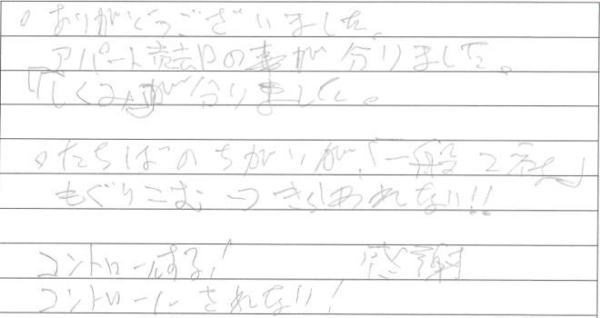 ○ ありがとうございました。
アパート売却の事が分りました。
「しくみ」が分りました。
○ たちばのちがいが、「一般
もぐりこむ → きらわれない!!
コントロールする! 感謝
コントロールされない!